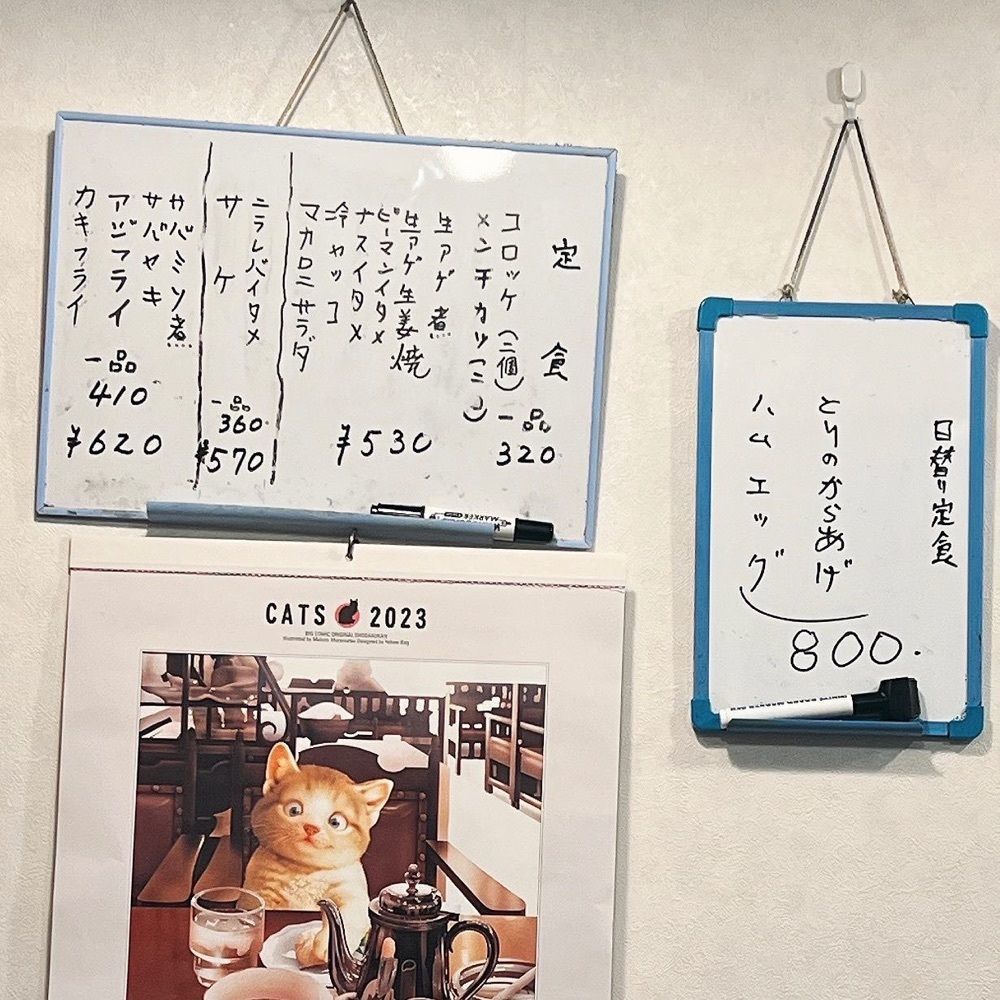 定食
コロッケ(二個)
メンチカツ(〃)
一品
320
生アゲ煮
生アゲ生姜焼
ピーマンイタメ
ナスイタメ
冷ヤッコ
マカロニサラダ
¥530
ニラレバイタメ
サケ
一品
360
¥570
サバミソ煮
サバヤキ
アジフライ
カキフライ
一品
410
¥620
日替り定食
とりのからあげ
ハムエッグ
800.
CATS 2023
BIG COMIC ORIGINAL SHOGAKUKAN
MARKER